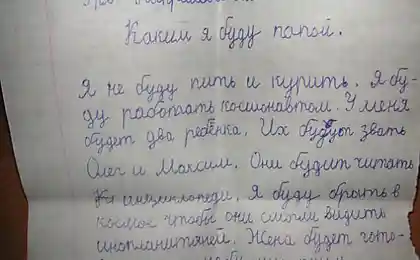 Каким я буду папой.
Я не буду пить и курить. Я бу-
ду работаать космонавтом. У меня
будет два ребёнка. Их будут звать
Олег и Максим. Они будит читать
инциклопеди. Я буду брать в
космос чтобы они смгли видить
инопланитяней. Жена будет гото-